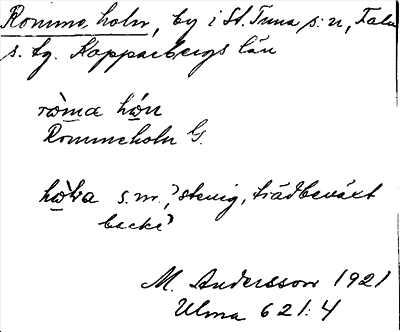 Romme holn, by i St. Tuna s:n, Falu
s. tg. Kopparbergs län
ròma hón
Rommeholn G.
s.m. "stenig, trädbeväxt
backe"
M. Andersson 1921
Ulma 621:4